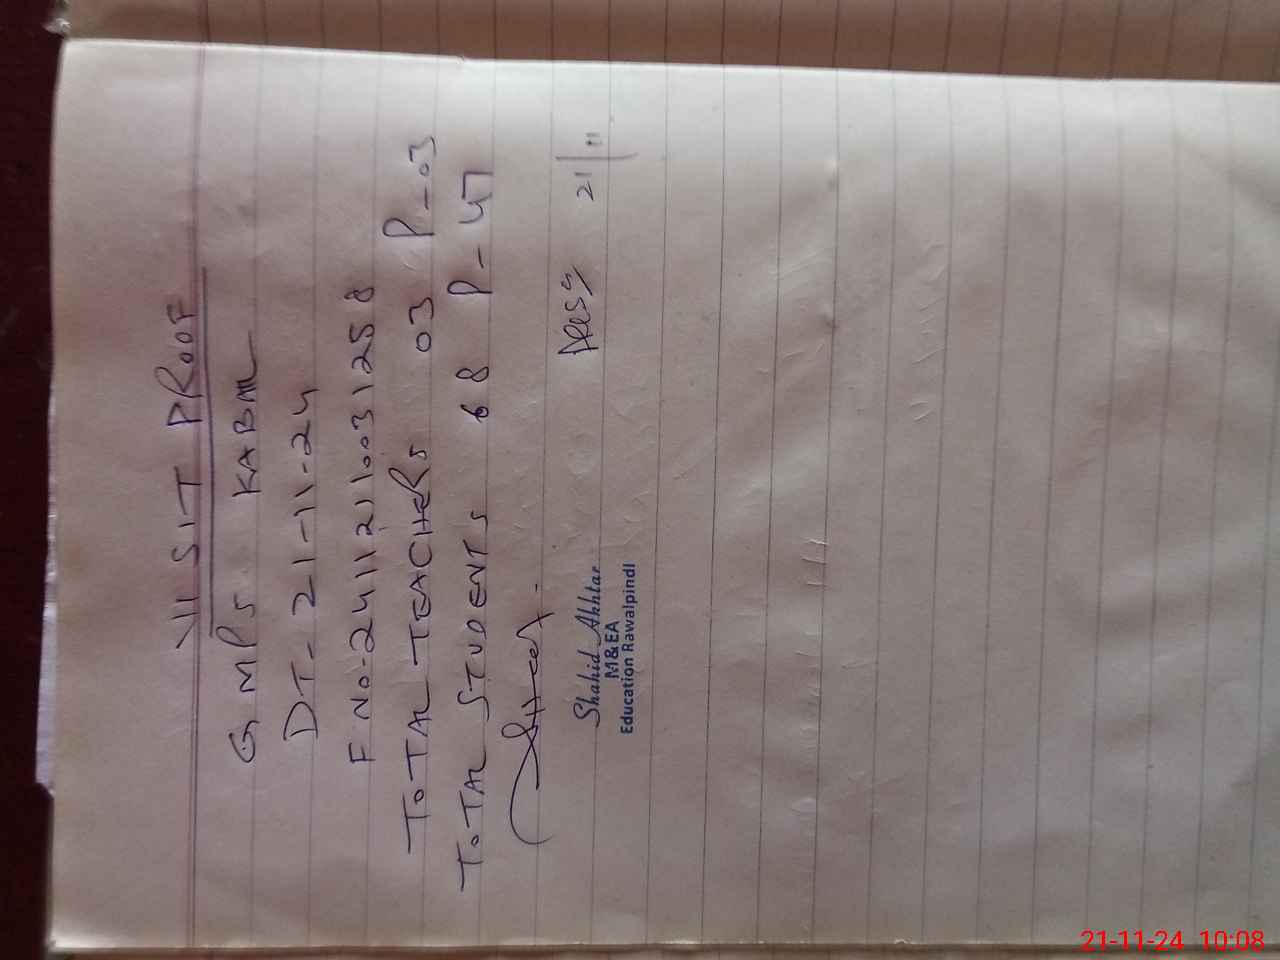 VISIT PROOF
GMPS KABAL
DT-21-11-24
F NO-24112110031258
TOTAL TEACHERS 03 P-03
TOTAL STUDENTS 68 P-47
21/11
Shahid Akhtar
M&EA
Education Rawalpindi
21-11-24 10:08